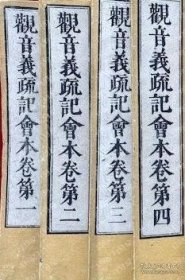 觀音義疏記會本卷第一
觀音義疏記會本卷第二
觀音義疏記會本卷第三
觀音義疏記會本卷第四